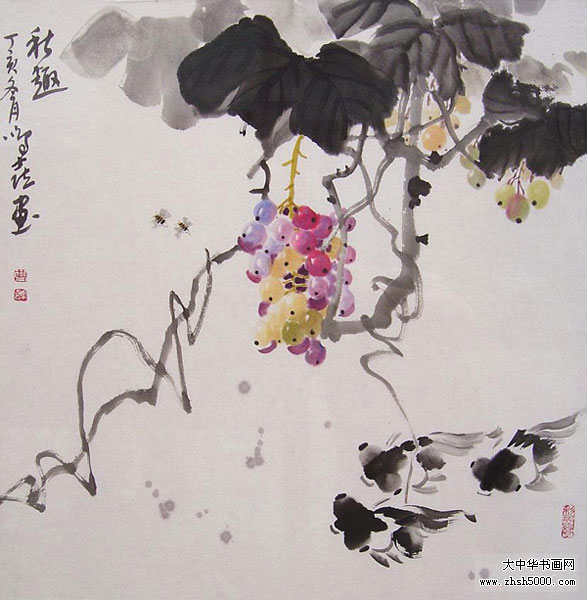 秋趣
丁亥冬月鸣画
大中华书画网
www.zhsh5000.com